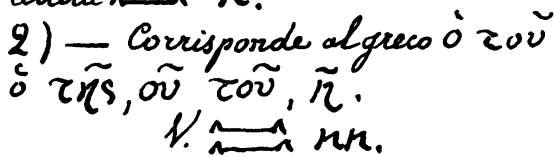 2) — Corrisponde al greco ὁ τοῦ
ὁ τῆς, οῦ τοῦ, ῆ.
V. nn.